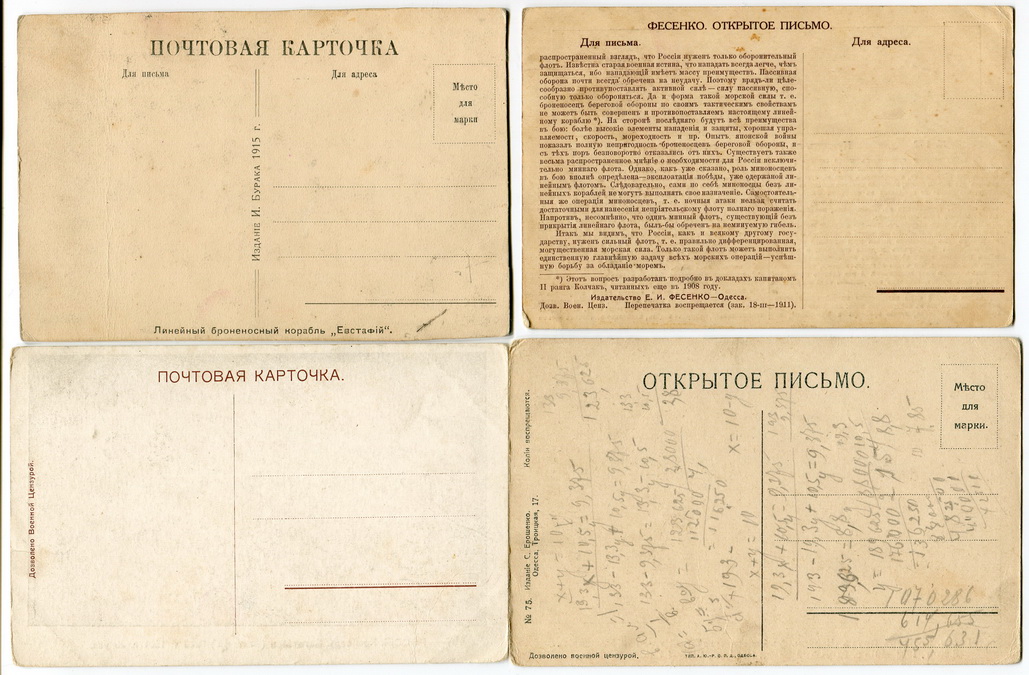 ПОЧТОВАЯ КАРТОЧКА
Для письма
Для адреса
Мѣсто
для
марки
Изданіе И. Бурака 1915 г.
Линейный броненосный корабль „Евстафій“.
ФЕСЕНКО. ОТКРЫТОЕ ПИСЬМО.
Для письма.
Для адреса.
распространенный взглядъ, что Россіи нуженъ только оборонительный
флотъ. Извѣстна старая военная истина, что нападать всегда легче, чѣмъ
защищаться, ибо нападающій имѣетъ массу преимуществъ. Пассивная
оборона почти всегда обречена на неудачу. Поэтому врядъ-ли цѣле-
сообразно противупоставлять активной силѣ—силу пассивную, спо-
собную только обороняться. Да и форма такой морской силы т. е.
броненосецъ береговой обороны по своимъ тактическимъ свойствамъ
не можетъ быть совершенъ и противопоставляемъ настоящему линей-
ному кораблю *). На сторонѣ послѣдняго будутъ всѣ преимущества
въ бою: болѣе высокіе элементы нападенія и защиты, хорошая упра-
вляемость, скорость, мореходность и пр. Опытъ японской войны
показалъ полную непригодность броненосцевъ береговой обороны, и
съ тѣхъ поръ безповоротно отказались отъ нихъ. Существуетъ также
весьма распространенное мнѣніе о необходимости для Россіи исключи-
тельно миннаго флота. Однако, какъ уже сказано, роль миноносцевъ
въ бою вполнѣ опредѣлена—эксплоатація побѣды, уже одержанной ли-
нейнымъ флотомъ. Слѣдовательно, сами по себѣ миноносцы безъ ли-
нейныхъ кораблей не могутъ выполнять свое назначеніе. Самостоятель-
ныя же операціи миноносцевъ, т. е. ночныя атаки нельзя считать
достаточными для нанесенія непріятельскому флоту полнаго пораженія.
Напротивъ, несомнѣнно, что одинъ минный флотъ, существующій безъ
прикрытія линейнаго флота, былъ-бы обреченъ на неминуемую гибель.
Итакъ мы видимъ, что Россіи, какъ и всякому другому госу-
дарству, нуженъ сильный флотъ, т. е. правильно дифференцированная,
могущественная морская сила. Только такой флотъ можетъ выполнить
единственную главнѣйшую задачу всѣхъ морскихъ операцій—успѣш-
ную борьбу за обладаніе моремъ.
*) Этотъ вопросъ разработанъ подробно въ докладахъ капитаномъ
II ранга Колчакъ, читанныхъ еще въ 1908 году.
Издательство Е. И. ФЕСЕНКО—Одесса.
Дозв. Воен. Ценз. Перепечатка воспрещается (зак. 18-III—1911).
ПОЧТОВАЯ КАРТОЧКА.
Дозволено Военной Цензурой.
ОТКРЫТОЕ ПИСЬМО.
Мѣсто
для
марки.
№ 75. Изданіе С. Ерошенко. Копіи воспрещаются.
Одесса, Троицкая, 17.
x+y=10
x=10-y
1070286
Дозволено военной цензурой.